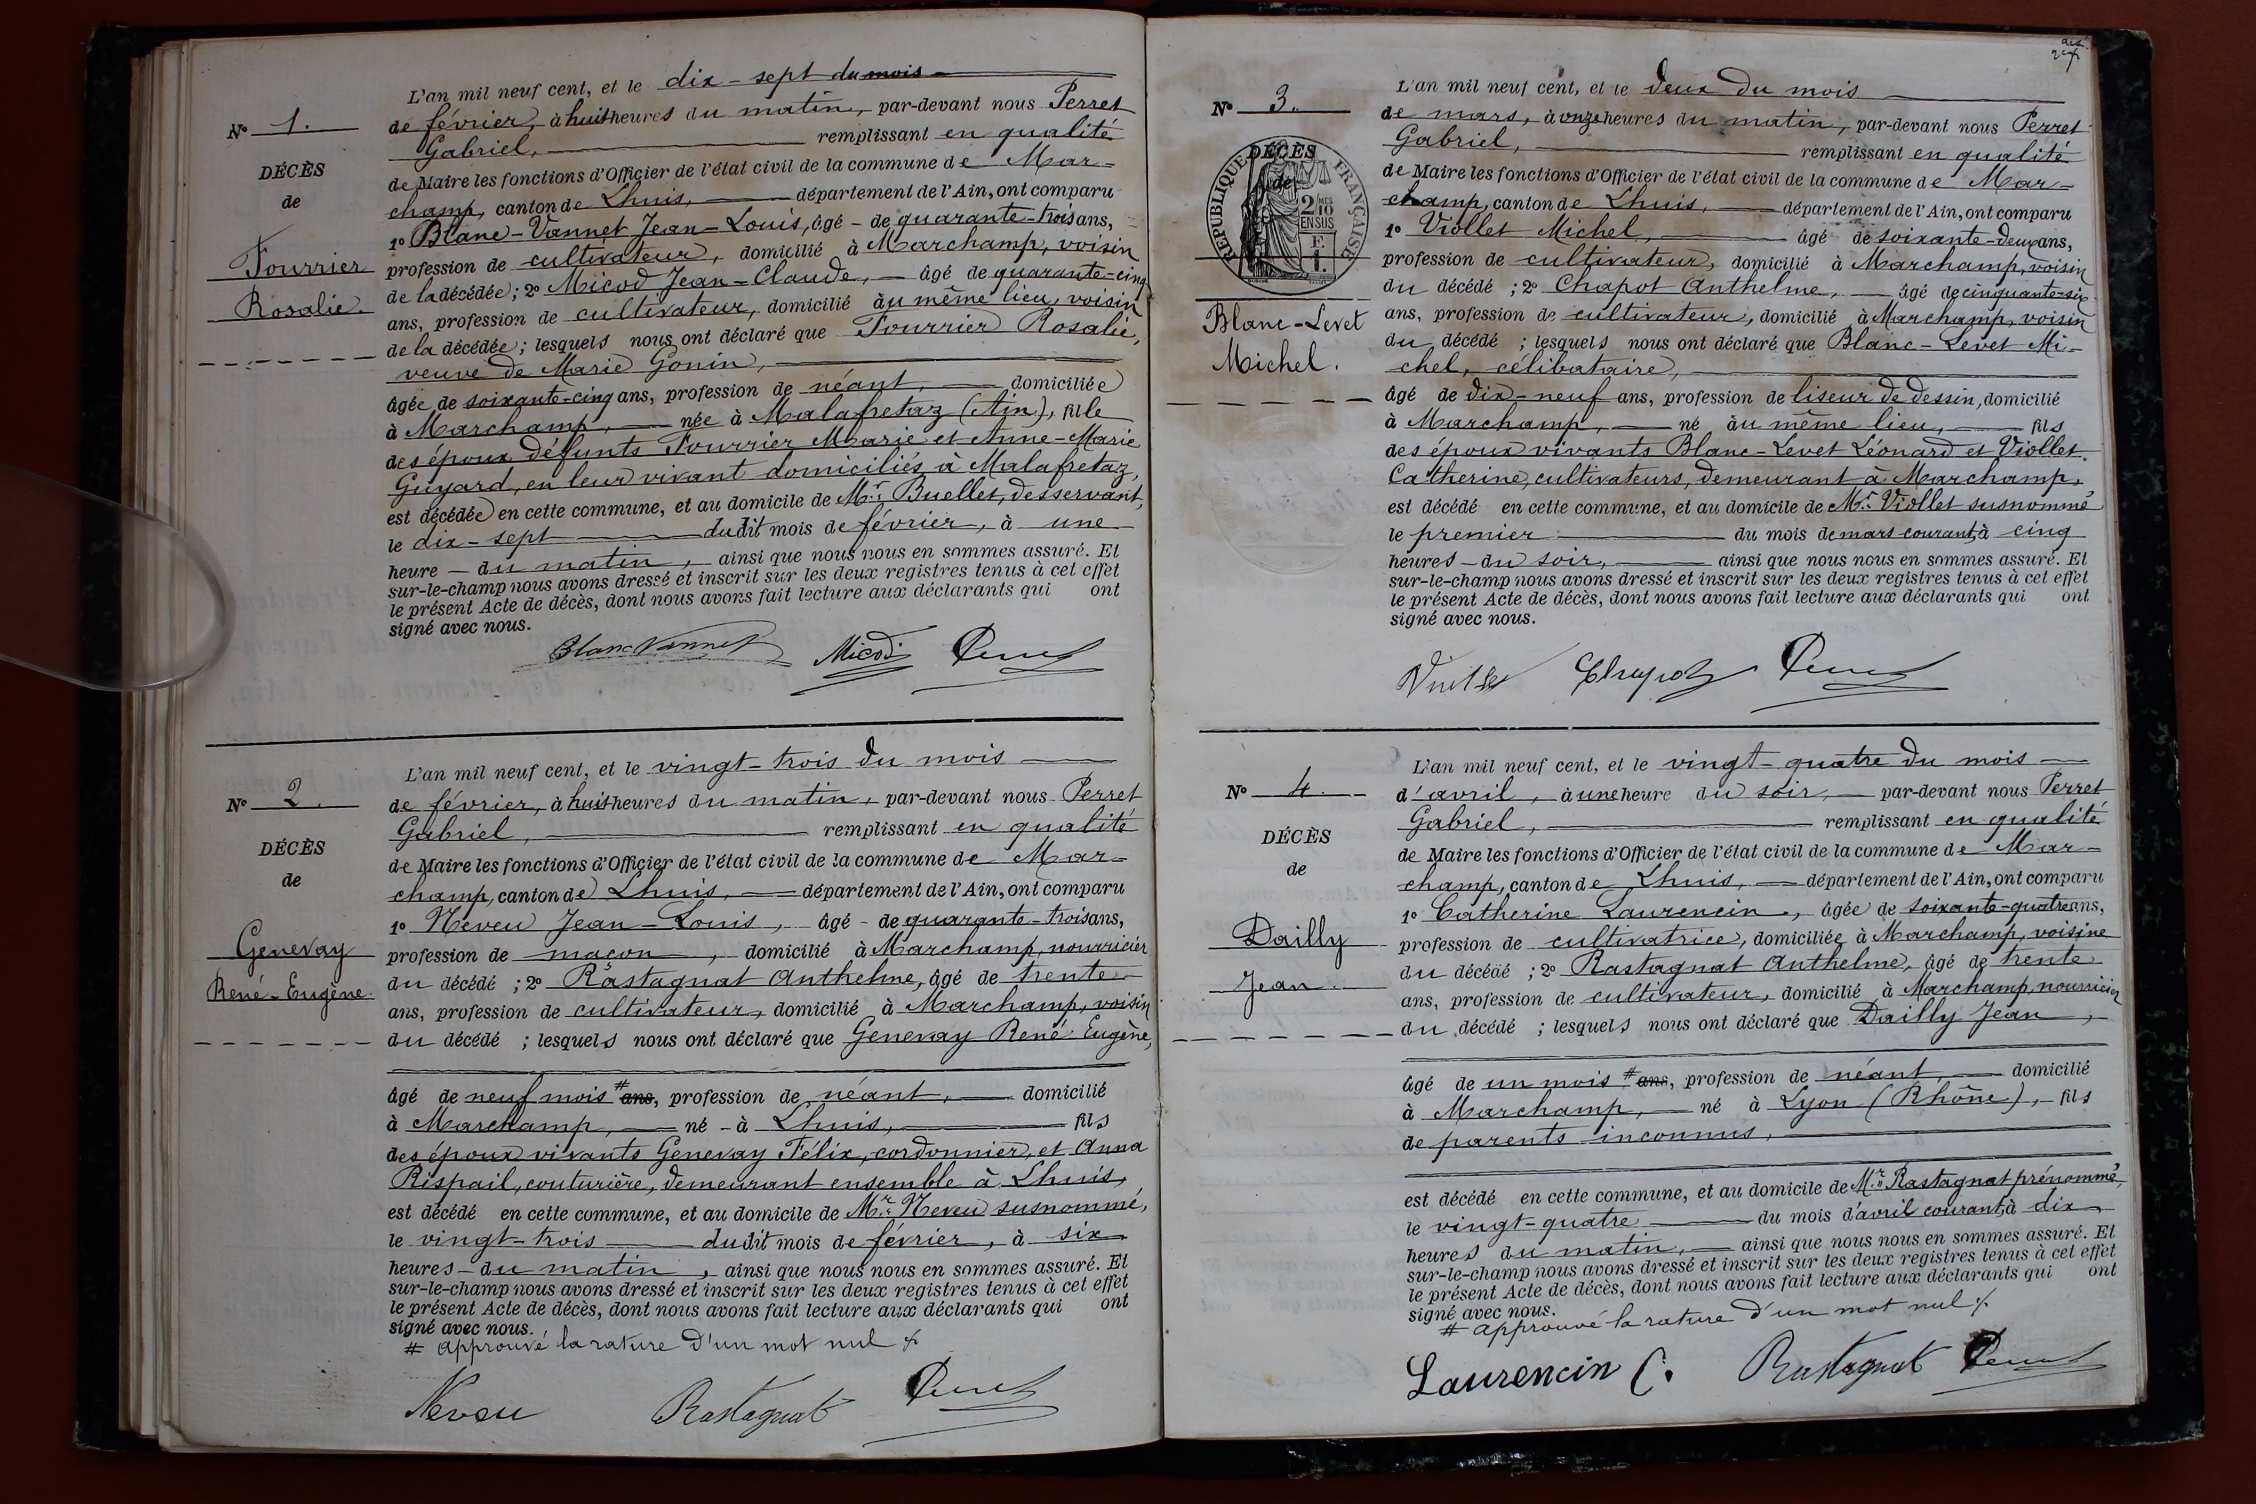 L'an mil neuf cent, et le dix-sept du mois
de février, à huit heures du matin, par-devant nous Perret
Gabriel, remplissant en qualité
de Maire les fonctions d'Officier de l'état civil de la commune de Mar-
champ, canton de Lhuis, département de l'Ain, ont comparu
1º Blanc-Vannet Jean-Louis, âgé de quarante-trois ans,
profession de cultivateur, domicilié à Marchamp, voisin
de la décédée; 2º Micod Jean-Claude, âgé de quarante-cinq
ans, profession de cultivateur, domicilié au même lieu, voisin
de la décédée; lesquels nous ont déclaré que Fourrier Rosalie,
veuve de Marie Gonin,
âgée de soixante-cinq ans, profession de néant, domiciliée
à Marchamp, née à Malafretaz (Ain), fille
des époux défunts Fourrier Marie et Anne-Marie
Guyard, en leur vivant domiciliés à Malafretaz,
est décédée en cette commune, et au domicile de Mr Buellet, desservant,
le dix-sept dudit mois de février, à une
heure du matin, ainsi que nous nous en sommes assuré. Et
sur-le-champ nous avons dressé et inscrit sur les deux registres tenus à cet effet
le présent Acte de décès, dont nous avons fait lecture aux déclarants qui ont
signé avec nous.
Blanc Vannet Micod Perret
Nº 1.
DÉCÈS
de
Fourrier
Rosalie.
L'an mil neuf cent, et le vingt-trois du mois
de février, à huit heures du matin, par-devant nous Perret
Gabriel, remplissant en qualité
de Maire les fonctions d'Officier de l'état civil de la commune de Mar-
champ, canton de Lhuis, département de l'Ain, ont comparu
1º Neveu Jean-Louis, âgé de quarante-trois ans,
profession de maçon, domicilié à Marchamp, nourricier
du décédé; 2º Rastagnat Anthelme, âgé de trente
ans, profession de cultivateur, domicilié à Marchamp, voisin
du décédé; lesquels nous ont déclaré que Genevay René-Eugène,
âgé de neuf mois # ans, profession de néant, domicilié
à Marchamp, né à Lhuis, fils
des époux vivants Genevay Félix, cordonnier, et Anna
Rispail, couturière, demeurant ensemble à Lhuis,
est décédé en cette commune, et au domicile de Mr Neveu susnommé,
le vingt-trois dudit mois de février, à six
heures du matin, ainsi que nous nous en sommes assuré. Et
sur-le-champ nous avons dressé et inscrit sur les deux registres tenus à cet effet
le présent Acte de décès, dont nous avons fait lecture aux déclarants qui ont
signé avec nous.
# approuvé la rature d'un mot nul
Neveu Rastagnat Perret
Nº 2.
DÉCÈS
de
Genevay
René-Eugène
L'an mil neuf cent, et le deux du mois
de mars, à onze heures du matin, par-devant nous Perret
Gabriel, remplissant en qualité
de Maire les fonctions d'Officier de l'état civil de la commune de Mar-
champ, canton de Lhuis, département de l'Ain, ont comparu
1º Viollet Michel, âgé de soixante-deux ans,
profession de cultivateur, domicilié à Marchamp, voisin
du décédé; 2º Chapot Anthelme, âgé de cinquante-six
ans, profession de cultivateur, domicilié à Marchamp, voisin
du décédé; lesquels nous ont déclaré que Blanc-Levet Mi-
chel, célibataire,
âgé de dix-neuf ans, profession de liseur de dessin, domicilié
à Marchamp, né au même lieu, fils
des époux vivants Blanc-Levet Léonard et Viollet
Catherine, cultivateurs, demeurant à Marchamp,
est décédé en cette commune, et au domicile de Mr Viollet susnommé
le premier du mois de mars courant, à cinq
heures du soir, ainsi que nous nous en sommes assuré. Et
sur-le-champ nous avons dressé et inscrit sur les deux registres tenus à cet effet
le présent Acte de décès, dont nous avons fait lecture aux déclarants qui ont
signé avec nous.
Viollet Chapot Perret
Nº 3.
DÉCÈS
de
RÉPUBLIQUE FRANÇAISE
2 MES
10
EN SUS
F.
1.
Blanc-Levet
Michel.
L'an mil neuf cent, et le vingt-quatre du mois
d'avril, à une heure du soir, par-devant nous Perret
Gabriel, remplissant en qualité
de Maire les fonctions d'Officier de l'état civil de la commune de Mar-
champ, canton de Lhuis, département de l'Ain, ont comparu
1º Catherine Laurencin, âgée de soixante-quatre ans,
profession de cultivatrice, domiciliée à Marchamp, voisine
du décédé; 2º Rastagnat Anthelme, âgé de trente
ans, profession de cultivateur, domicilié à Marchamp, nourricier
du décédé; lesquels nous ont déclaré que Dailly Jean,
âgé de un mois # ans, profession de néant, domicilié
à Marchamp, né à Lyon (Rhône), fils
de parents inconnus,
est décédé en cette commune, et au domicile de Mr Rastagnat prénommé,
le vingt-quatre du mois d'avril courant, à dix
heures du matin, ainsi que nous nous en sommes assuré. Et
sur-le-champ nous avons dressé et inscrit sur les deux registres tenus à cet effet
le présent Acte de décès, dont nous avons fait lecture aux déclarants qui ont
signé avec nous.
# approuvé la rature d'un mot nul
Laurencin C. Rastagnat Perret
Nº 4.
DÉCÈS
de
Dailly
Jean